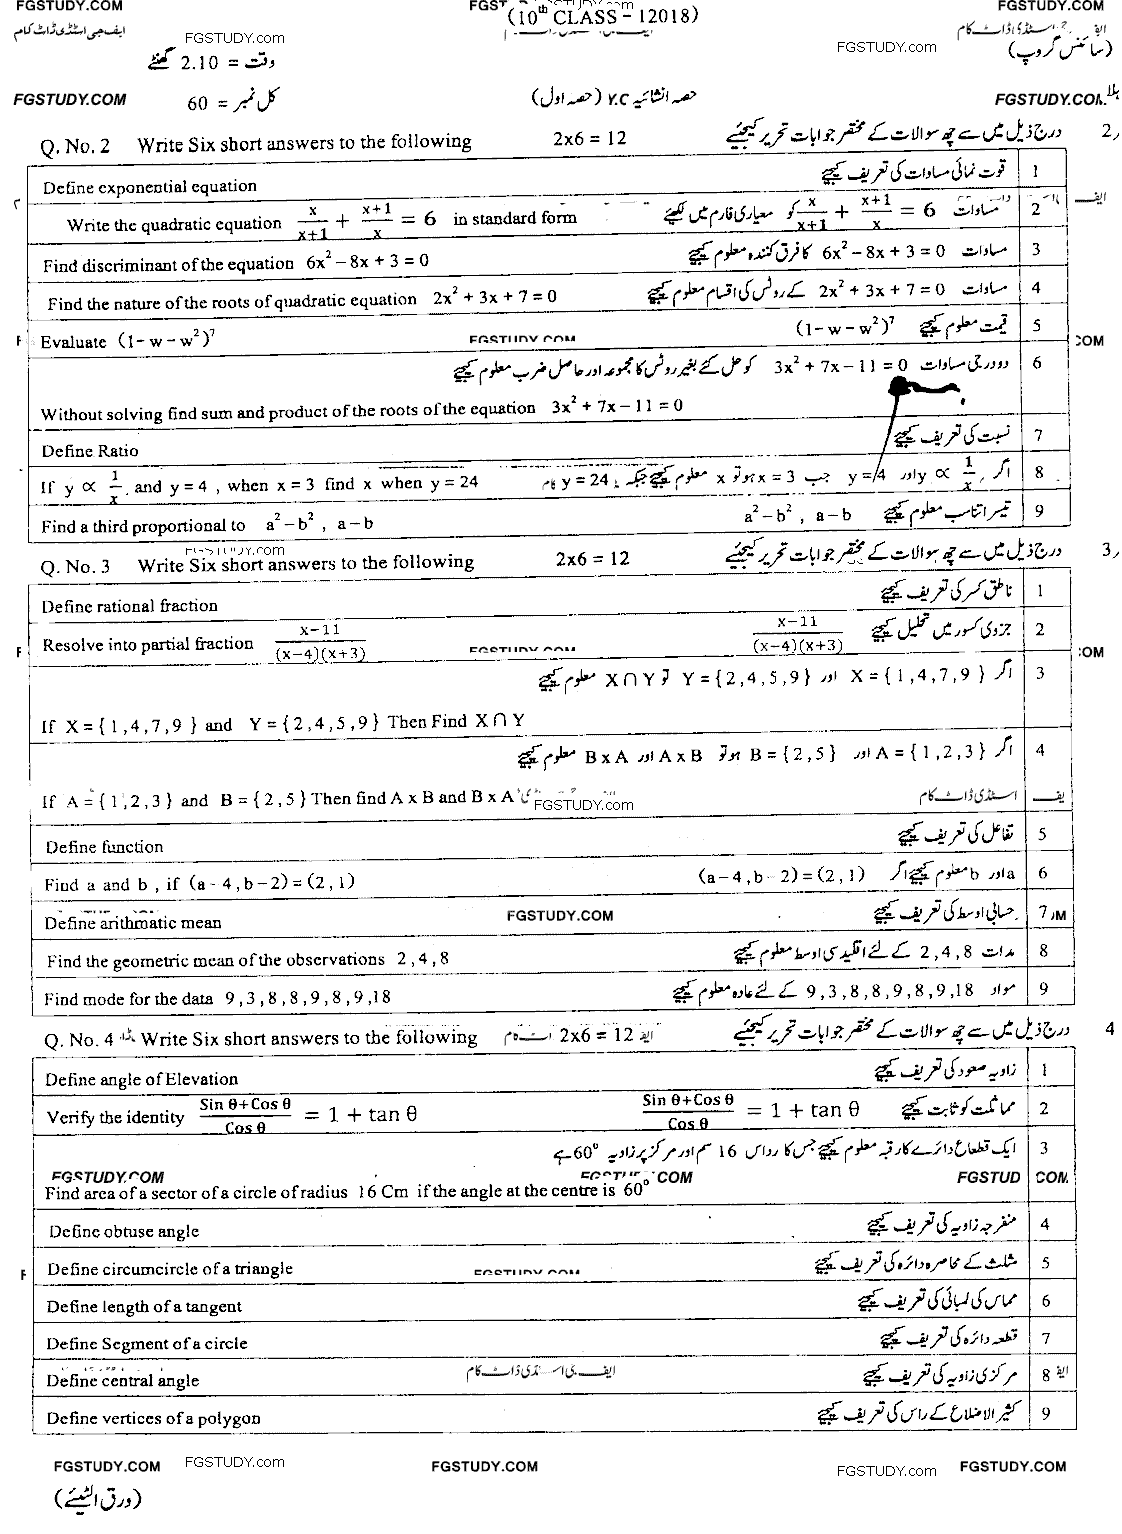 FGSTUDY.COM
(10th CLASS – 12018)
FGSTUDY.COM
ایف جی اسٹڈی ڈاٹ کام
FGSTUDY.com
FGSTUDY.com
(سائنس گروپ)
وقت = 2.10 گھنٹے
FGSTUDY.COM
کل نمبر = 60
حصہ انشائیہ Y.C (حصہ اول)
Q. No. 2 Write Six short answers to the following 2x6 = 12 درج ذیل میں سے چھ سوالات کے مختصر جوابات تحریر کیجئیے 2
Define exponential equation قوت نمائی مساوات کی تعریف کیجیے 1
Write the quadratic equation x/(x+1) + (x+1)/x = 6 in standard form مساوات x/(x+1) + (x+1)/x = 6 کو معیاری فارم میں لکھیے 2
Find discriminant of the equation 6x² – 8x + 3 = 0 مساوات 6x² – 8x + 3 = 0 کا فرق کنندہ معلوم کیجیے 3
Find the nature of the roots of quadratic equation 2x² + 3x + 7 = 0 مساوات 2x² + 3x + 7 = 0 کے روٹس کی اقسام معلوم کیجیے 4
Evaluate (1– w – w²)⁷ FGSTUDY.COM (1– w – w²)⁷ قیمت معلوم کیجیے 5
دو درجی مساوات 3x² + 7x – 11 = 0 کو حل کئے بغیر روٹس کا مجموعہ اور حاصل ضرب معلوم کیجیے 6
Without solving find sum and product of the roots of the equation 3x² + 7x – 11 = 0
Define Ratio نسبت کی تعریف کیجیے 7
If y ∝ 1/x and y = 4 , when x = 3 find x when y = 24 اگر y ∝ 1/x اور y = 4 جب x = 3 ہو تو x معلوم کیجیے جبکہ y = 24 8
Find a third proportional to a² – b² , a – b a² – b² , a – b تیسرا تناسب معلوم کیجیے 9
FGSTUDY.com
Q. No. 3 Write Six short answers to the following 2x6 = 12 درج ذیل میں سے چھ سوالات کے مختصر جوابات تحریر کیجئیے 3
Define rational fraction ناطق کسر کی تعریف کیجیے 1
Resolve into partial fraction (x–11)/((x–4)(x+3)) FGSTUDY.COM (x–11)/((x–4)(x+3)) جزوی کسور میں تحلیل کیجیے 2
اگر X = { 1 , 4 , 7 , 9 } اور Y = { 2 , 4 , 5 , 9 } تو X ∩ Y معلوم کیجیے 3
If X = { 1 , 4 , 7 , 9 } and Y = { 2 , 4 , 5 , 9 } Then Find X ∩ Y
اگر A = { 1 , 2 , 3 } اور B = { 2 , 5 } ہو تو A x B اور B x A معلوم کیجیے 4
If A = { 1 , 2 , 3 } and B = { 2 , 5 } Then find A x B and B x A FGSTUDY.com اسٹڈی ڈاٹ کام
Define function تفاعل کی تعریف کیجیے 5
Find a and b , if (a - 4 , b – 2) = (2 , 1) (a – 4 , b – 2) = (2 , 1) a اور b معلوم کیجیے اگر 6
Define arithmatic mean FGSTUDY.COM حسابی اوسط کی تعریف کیجیے 7
Find the geometric mean of the observations 2 , 4 , 8 مدات 2 , 4 , 8 کے لئے اقلیدسی اوسط معلوم کیجیے 8
Find mode for the data 9 , 3 , 8 , 8 , 9 , 8 , 9 , 18 مواد 9 , 3 , 8 , 8 , 9 , 8 , 9 , 18 کے لئے عادہ معلوم کیجیے 9
Q. No. 4 Write Six short answers to the following 2x6 = 12 درج ذیل میں سے چھ سوالات کے مختصر جوابات تحریر کیجئیے 4
Define angle of Elevation زاویہ صعود کی تعریف کیجیے 1
Verify the identity (Sin θ + Cos θ)/Cos θ = 1 + tan θ (Sin θ + Cos θ)/Cos θ = 1 + tan θ مماثلت کو ثابت کیجیے 2
ایک قطاع دائرے کا رقبہ معلوم کیجیے جس کا رداس 16 سم اور مرکز پر زاویہ 60° ہے 3
FGSTUDY.COM
Find area of a sector of a circle of radius 16 Cm if the angle at the centre is 60°
Define obtuse angle منفرجہ زاویہ کی تعریف کیجیے 4
Define circumcircle of a triangle FGSTUDY.COM مثلث کے محاصرہ دائرہ کی تعریف کیجیے 5
Define length of a tangent مماس کی لمبائی کی تعریف کیجیے 6
Define Segment of a circle قطعہ دائرہ کی تعریف کیجیے 7
Define central angle مرکزی زاویہ کی تعریف کیجیے 8
Define vertices of a polygon کثیر الاضلاع کے راس کی تعریف کیجیے 9
FGSTUDY.COM FGSTUDY.com FGSTUDY.COM FGSTUDY.com FGSTUDY.COM
(ورق الٹیئے)